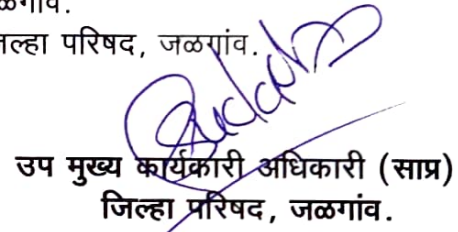 ळगाव.
जिल्हा परिषद, जळगांव.
उप मुख्य कार्यकारी अधिकारी (साप्र)
जिल्हा परिषद, जळगांव.